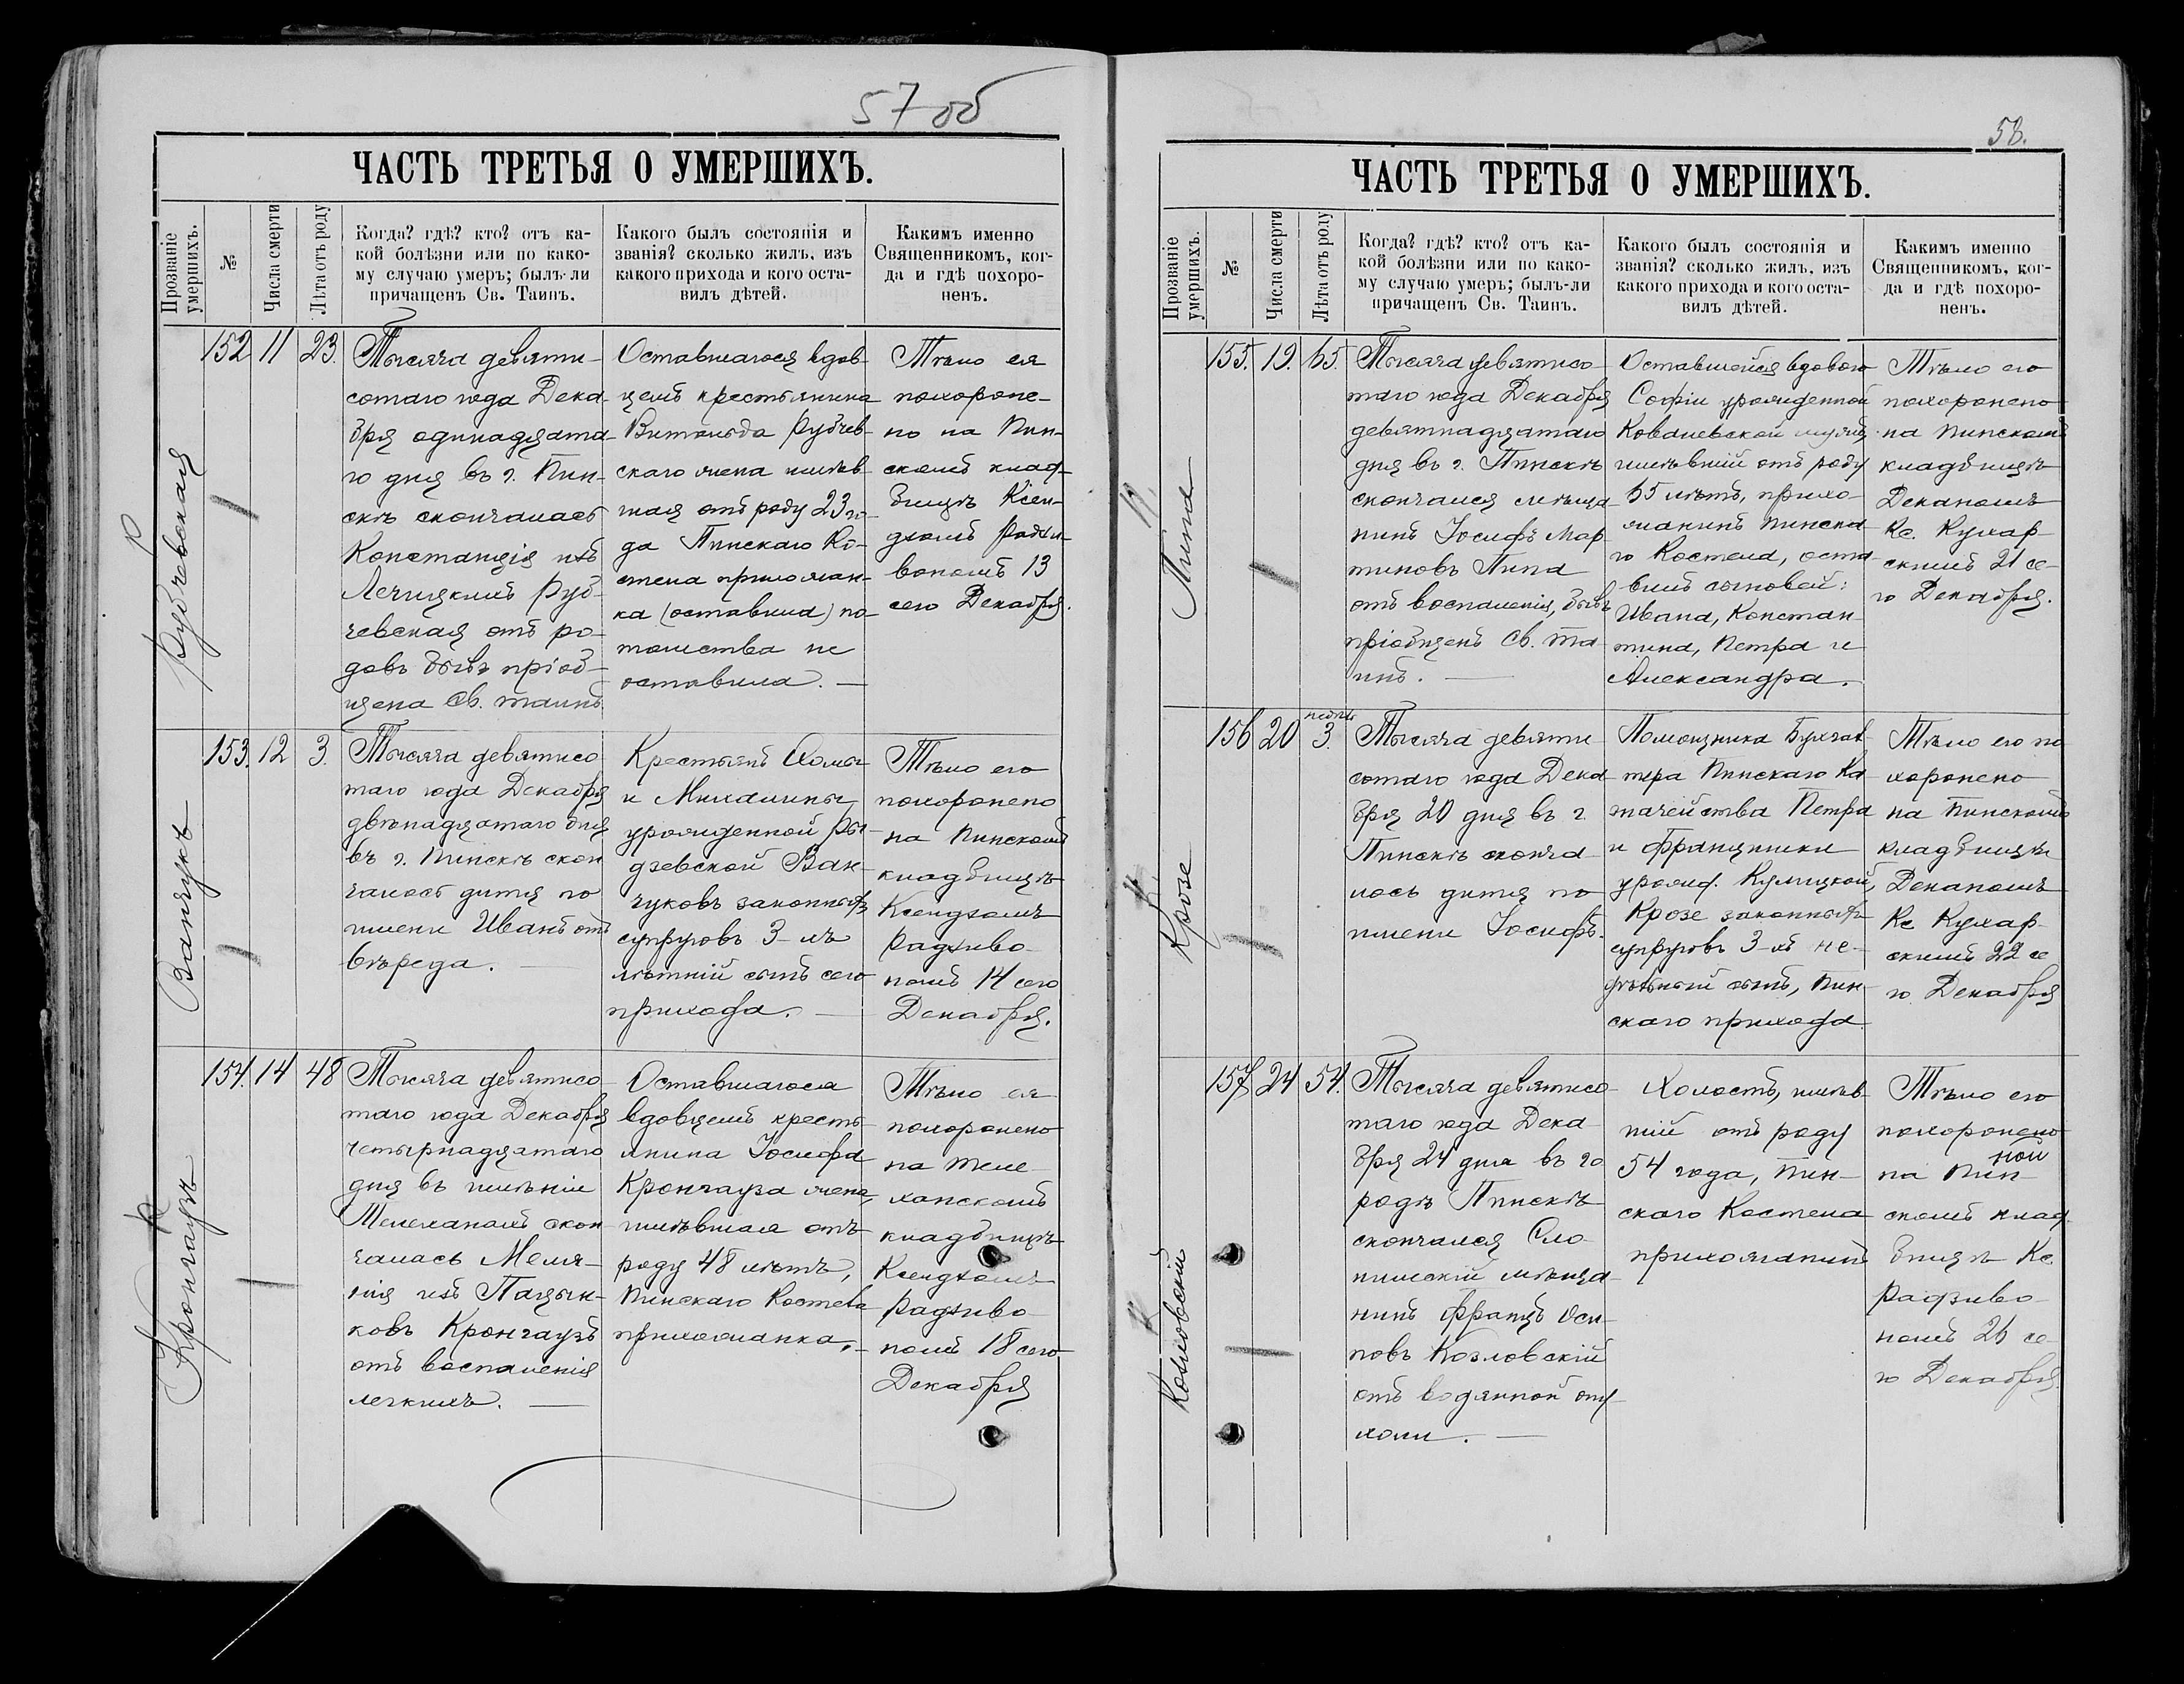 57 об
ЧАСТЬ ТРЕТЬЯ О УМЕРШИХЪ.
Прозваніе умершихъ.
№
Числа смерти
Лѣта отъ роду
Когда? гдѣ? кто? отъ ка-
кой болѣзни или по како-
му случаю умеръ; былъ-ли
причащенъ Св. Таинъ.
Какого былъ состоянія и
званія? сколько жилъ, изъ
какого прихода и кого оста-
вилъ дѣтей.
Какимъ именно
Священникомъ, ког-
да и гдѣ похоро-
ненъ.
Рубчевская
152 11 23.
Тысяча девяти-
сотаго года Дека-
бря одинадцата-
го дня въ г. Пин-
скѣ скончалась
Констанція изъ
Лечицкихъ Руб-
чевская отъ ро-
довъ бывъ пріоб-
щена Св. таинъ
Оставшагося вдов-
цемъ крестьянина
Витольда Рубчев-
скаго жена имѣв-
шая отъ роду 23 го-
да Пинскаго Ко-
стела прихожан-
ка (оставила) по-
томства не
оставила. —
Тѣло ея
похороне-
но на Пин-
скомъ клад-
бищѣ Ксен-
дзомъ Радзи-
вономъ 13
сего Декабря.
Ванчукъ
153. 12 3.
Тысяча девятисо
таго года Декабря
двѣнадцатаго дня
въ г. Пинскѣ скон
чалось дитя по
имени Иванъ отъ
вереда. —
Крестьянъ Хомы
и Михалины
урожденной Ры-
дзевской Ван-
чуковъ законныхъ
супруговъ 3-хъ
лѣтній сынъ сего
прихода. —
Тѣло его
похоронено
на Пинскомъ
кладбищѣ
Ксендзомъ
Радзиво
номъ 14 сего
Декабря.
Кронгаузъ
154. 14 48
Тысяча девятисо
таго года Декабря
четырнадцатаго
дня въ имѣніи
Телеханахъ скон
чалась Мела-
нія изъ Пацын-
ковъ Кронгаузъ
отъ воспаленія
легкихъ. —
Оставшагося
вдовцемъ кресть-
янина Іосифа
Кронгауза жена,
имѣвшая отъ
роду 48 лѣтъ,
Пинскаго Костела
прихожанка. —
Тѣло ея
похоронено
на Теле-
ханскомъ
кладбищѣ
Ксендзомъ
Радзиво
номъ 18 сего
Декабря
58.
ЧАСТЬ ТРЕТЬЯ О УМЕРШИХЪ.
Прозваніе умершихъ.
№
Числа смерти
Лѣта отъ роду
Когда? гдѣ? кто? отъ ка-
кой болѣзни или по како-
му случаю умеръ; былъ-ли
причащенъ Св. Таинъ.
Какого былъ состоянія и
званія? сколько жилъ, изъ
какого прихода и кого оста-
вилъ дѣтей.
Какимъ именно
Священникомъ, ког-
да и гдѣ похоро-
ненъ.
Липа
155. 19. 65.
Тысяча девятисо
таго года Декабря
девятнадцатаго
дня въ г. Пинскѣ
скончался мѣща
нинъ Іосифъ Мар
тиновъ Липа
отъ воспаленія, бывъ
пріобщенъ Св. Та
инъ. —
Оставшейся вдовою
Софіи урожденной
Ковалевской мужъ,
имѣвшій отъ роду
65 лѣтъ, прихо-
жанинъ Пинска
го Костела, оста
вилъ сыновей:
Ивана, Констан-
тина, Петра и
Александра.
Тѣло его
похоронено
на Пинскомъ
кладбищѣ
Деканомъ
Кс. Кухар-
скимъ 21 се-
го Декабря.
Крозе
156 20 недѣль 3.
Тысяча девяти
сотаго года Дека
бря 20 дня въ г.
Пинскѣ сконча-
лось дитя по
имени Іосифъ.
Помощника Бухгал
тера Пинскаго Ка
значейства Петра
и Францишки
урожд. Кулицкой,
Крозе законныхъ
супруговъ 3-хъ не-
дѣльный сынъ, Пин-
скаго прихода
Тѣло его по
хоронено
на Пинскомъ
кладбищѣ
Деканомъ
Кс Кухар-
скимъ 22 се
го Декабря
Козловскій
157 24 54.
Тысяча девятисо-
таго года Дека
бря 24 дня въ го
родѣ Пинскѣ
скончался Сло
нимскій мѣща-
нинъ Францъ Оси-
повъ Козловскій
отъ водянной опу-
холи. —
Холостъ, имѣв-
шій отъ роду
54 года, Пин-
скаго Костела
прихожанинъ
Тѣло его
похоронено
на Пин-
скомъ клад
бищѣ Кс.
Радзиво-
номъ 26 се
го Декабря